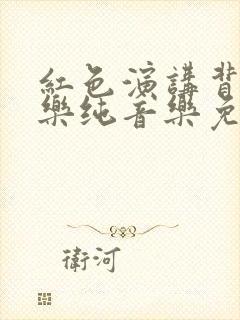 紅色演講背
樂纯音樂免
衛河